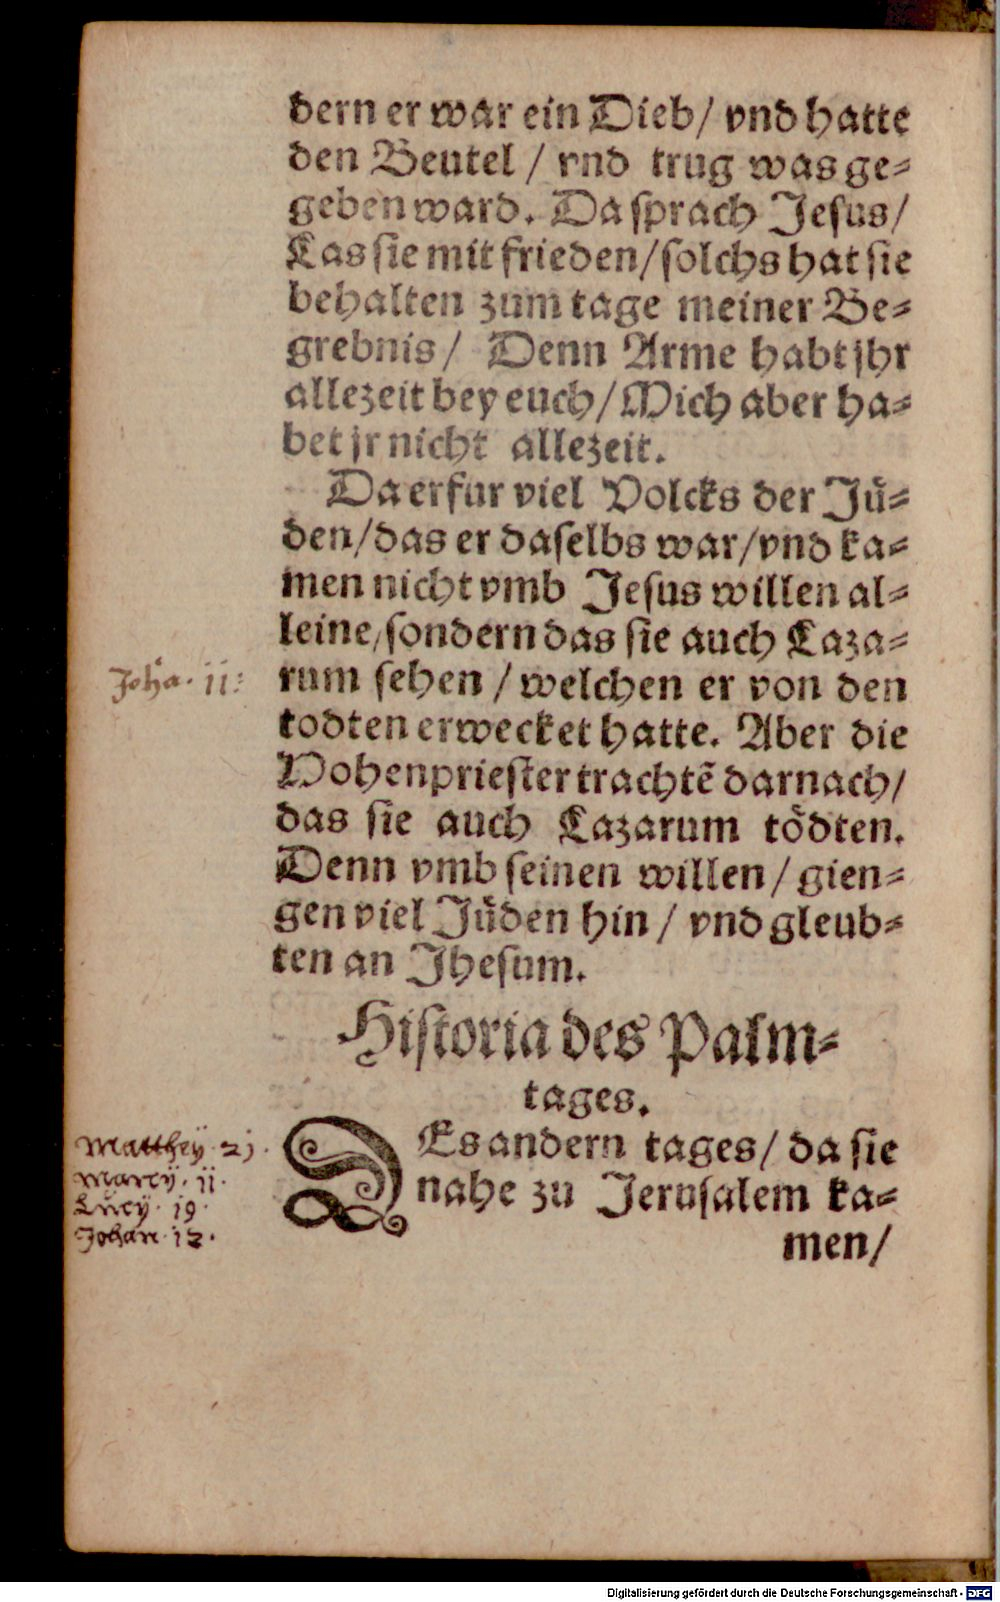 dern er war ein Dieb/ vnd hatte
den Beutel / vnd trug was ge⸗
geben ward. Da sprach Jesus/
Las sie mit frieden/solchs hat sie
behalten zum tage meiner Be⸗
grebnis/ Denn Arme habt jhr
allezeit bey euch/Mich aber ha⸗
bet jr nicht allezeit.
Da erfur viel Volcks der Jü⸗
den/das er daselbs war/vnd ka⸗
men nicht vmb Jesus willen al⸗
leine/sondern das sie auch Laza⸗
Joha. 11:
rum sehen / welchen er von den
todten erwecket hatte. Aber die
Hohenpriester trachtẽ darnach/
das sie auch Lazarum tödten.
Denn vmb seinen willen / gien⸗
gen viel Jüden hin / vnd gleub⸗
ten an Jhesum.
Historia des Palm⸗
tages.
DEs andern tages/ da sie
nahe zu Jerusalem ka⸗
men/
Matthey. 21.
Marcy. 11.
Lucy. 19.
Johan. 12.
Digitalisierung gefördert durch die Deutsche Forschungsgemeinschaft - DFG